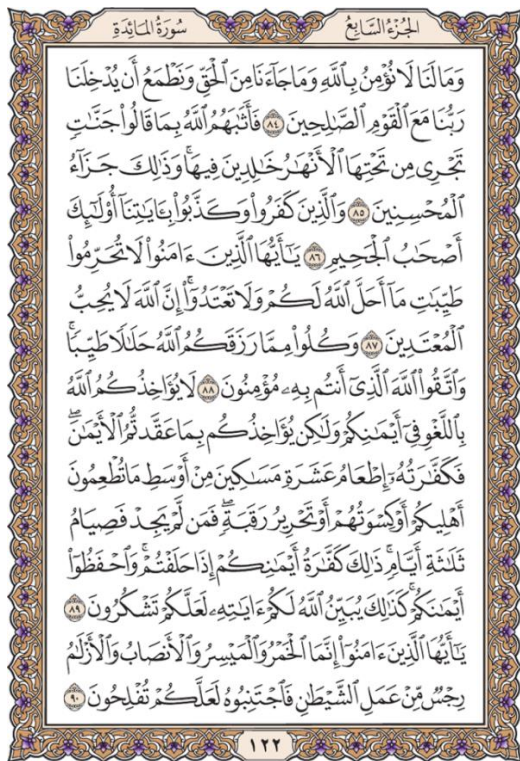 سُورَةُ المَائِدَةِ
الجُزْءُ السَّابِعُ
وَمَالَنَا لَا نُؤْمِنُ بِٱللَّهِ وَمَا جَآءَنَا مِنَ ٱلْحَقِّ وَنَطْمَعُ أَن يُدْخِلَنَا
رَبُّنَا مَعَ ٱلْقَوْمِ ٱلصَّٰلِحِينَ ٨٤ فَأَثَٰبَهُمُ ٱللَّهُ بِمَا قَالُوا۟ جَنَّٰتٍ
تَجْرِى مِن تَحْتِهَا ٱلْأَنْهَٰرُ خَٰلِدِينَ فِيهَا ۚ وَذَٰلِكَ جَزَآءُ
ٱلْمُحْسِنِينَ ٨٥ وَٱلَّذِينَ كَفَرُوا۟ وَكَذَّبُوا۟ بِـَٔايَٰتِنَآ أُو۟لَٰٓئِكَ
أَصْحَٰبُ ٱلْجَحِيمِ ٨٦ يَٰٓأَيُّهَا ٱلَّذِينَ ءَامَنُوا۟ لَا تُحَرِّمُوا۟
طَيِّبَٰتِ مَآ أَحَلَّ ٱللَّهُ لَكُمْ وَلَا تَعْتَدُوٓا۟ ۚ إِنَّ ٱللَّهَ لَا يُحِبُّ
ٱلْمُعْتَدِينَ ٨٧ وَكُلُوا۟ مِمَّا رَزَقَكُمُ ٱللَّهُ حَلَٰلًا طَيِّبًا ۚ
وَٱتَّقُوا۟ ٱللَّهَ ٱلَّذِىٓ أَنتُم بِهِۦ مُؤْمِنُونَ ٨٨ لَا يُؤَاخِذُكُمُ ٱللَّهُ
بِٱللَّغْوِ فِىٓ أَيْمَٰنِكُمْ وَلَٰكِن يُؤَاخِذُكُم بِمَا عَقَّدتُّمُ ٱلْأَيْمَٰنَ ۖ
فَكَفَّٰرَتُهُۥٓ إِطْعَامُ عَشَرَةِ مَسَٰكِينَ مِنْ أَوْسَطِ مَا تُطْعِمُونَ
أَهْلِيكُمْ أَوْ كِسْوَتُهُمْ أَوْ تَحْرِيرُ رَقَبَةٍ ۖ فَمَن لَّمْ يَجِدْ فَصِيَامُ
ثَلَٰثَةِ أَيَّامٍ ۚ ذَٰلِكَ كَفَّٰرَةُ أَيْمَٰنِكُمْ إِذَا حَلَفْتُمْ ۚ وَٱحْفَظُوٓا۟
أَيْمَٰنَكُمْ ۚ كَذَٰلِكَ يُبَيِّنُ ٱللَّهُ لَكُمْ ءَايَٰتِهِۦ لَعَلَّكُمْ تَشْكُرُونَ ٨٩
يَٰٓأَيُّهَا ٱلَّذِينَ ءَامَنُوٓا۟ إِنَّمَا ٱلْخَمْرُ وَٱلْمَيْسِرُ وَٱلْأَنصَابُ وَٱلْأَزْلَٰمُ
رِجْسٌ مِّنْ عَمَلِ ٱلشَّيْطَٰنِ فَٱجْتَنِبُوهُ لَعَلَّكُمْ تُفْلِحُونَ ٩٠
١٢٢